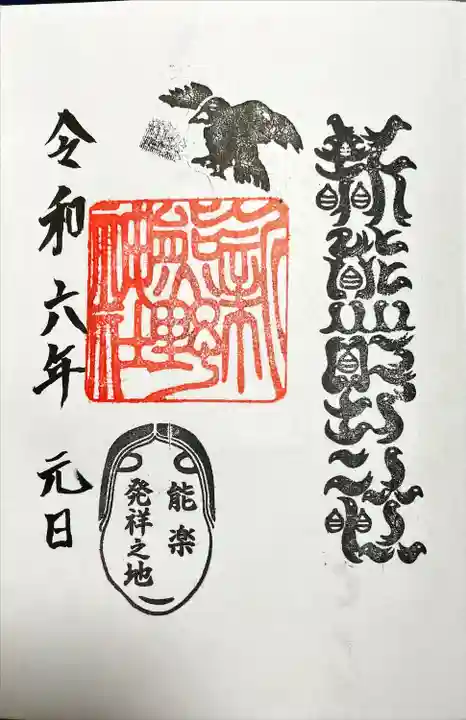 新熊野神社
新熊野神社
能楽
発祥之地
令和六年 元日